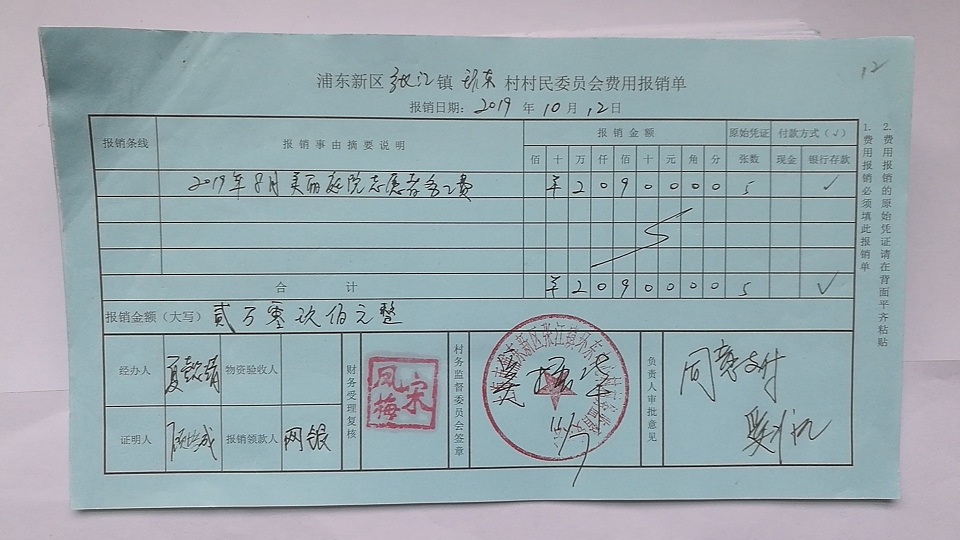 12
浦东新区 张江 镇 环东 村村民委员会费用报销单
报销日期: 2019 年 10 月 12 日
报销条线 报销事由摘要说明 报销金额 原始凭证 付款方式(√)
佰 十 万 仟 佰 十 元 角 分 张数 现金 银行存款
2019年8月美丽庭院志愿者务工费 ¥ 2 0 9 0 0 0 0 5 √
合计 ¥ 2 0 9 0 0 0 0 5 √
报销金额(大写) 贰万零玖佰元整
经办人 物资验收人
证明人 报销领款人 网银
财务受理复核
宋凤梅
村务监督委员会签章
负责人审批意见
同意支付
1.费用报销必须填此报销单
2.费用报销的原始凭证请在背面平齐粘贴